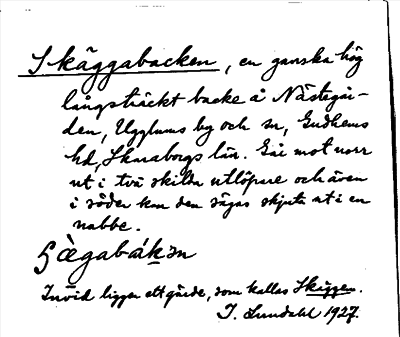 Skäggabacken, en ganska hög
långsträckt backe å Nästegår-
den, Ugglums by och sn, Gudhems
hd, Skaraborgs län. Går mot norr
ut i två skilda utlöpare och även
i söder kan den sägas skjuta ut i en
nabbe.
Invid ligger ett gärde, som kallas Skäggen.
J. Lundahl 1927.